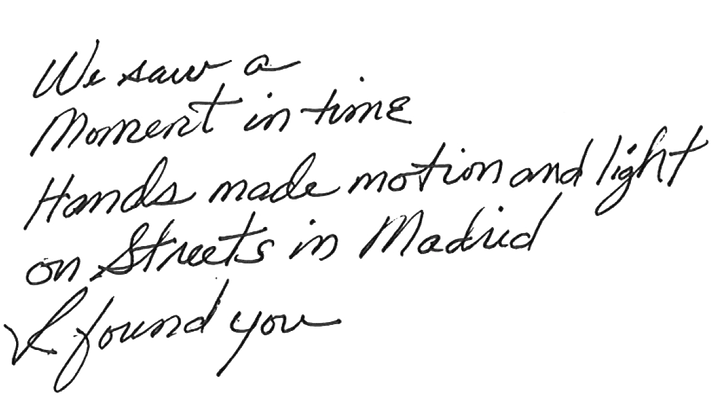 We saw a
Moment in time
Hands made motion and light
on Streets in Madrid
I found you